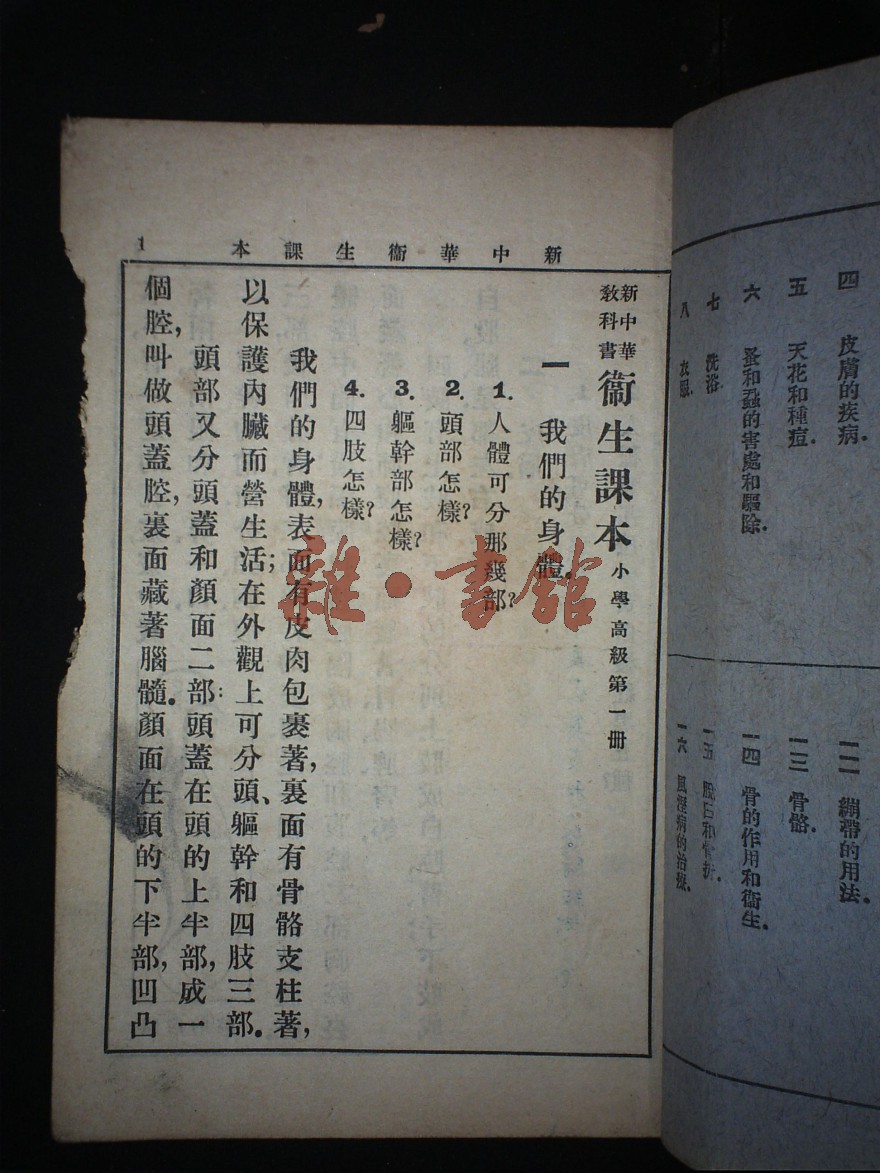 四 皮膚的疾病.
五 天花和種痘.
六 蚤和蝨的害處和驅除.
七 洗浴.
八 衣服.
一二 繃帶的用法.
一三 骨骼.
一四 骨的作用和衞生.
一五 脫臼和骨折.
一六 風溼病的治療.
新中華衞生課本
1
新中華教科書 衞生課本 小學高級第一册
一 我們的身體.
1. 人體可分那幾部?
2. 頭部怎樣?
3. 軀幹部怎樣?
4. 四肢怎樣?
我們的身體,表面有皮肉包裹著,裏面有骨骼支柱著,
以保護內臟而營生活;在外觀上可分頭、軀幹和四肢三部.
頭部又分頭蓋和顏面二部:頭蓋在頭的上半部,成一
個腔,叫做頭蓋腔,裏面藏著腦髓.顏面在頭的下半部,凹凸
雜·書館